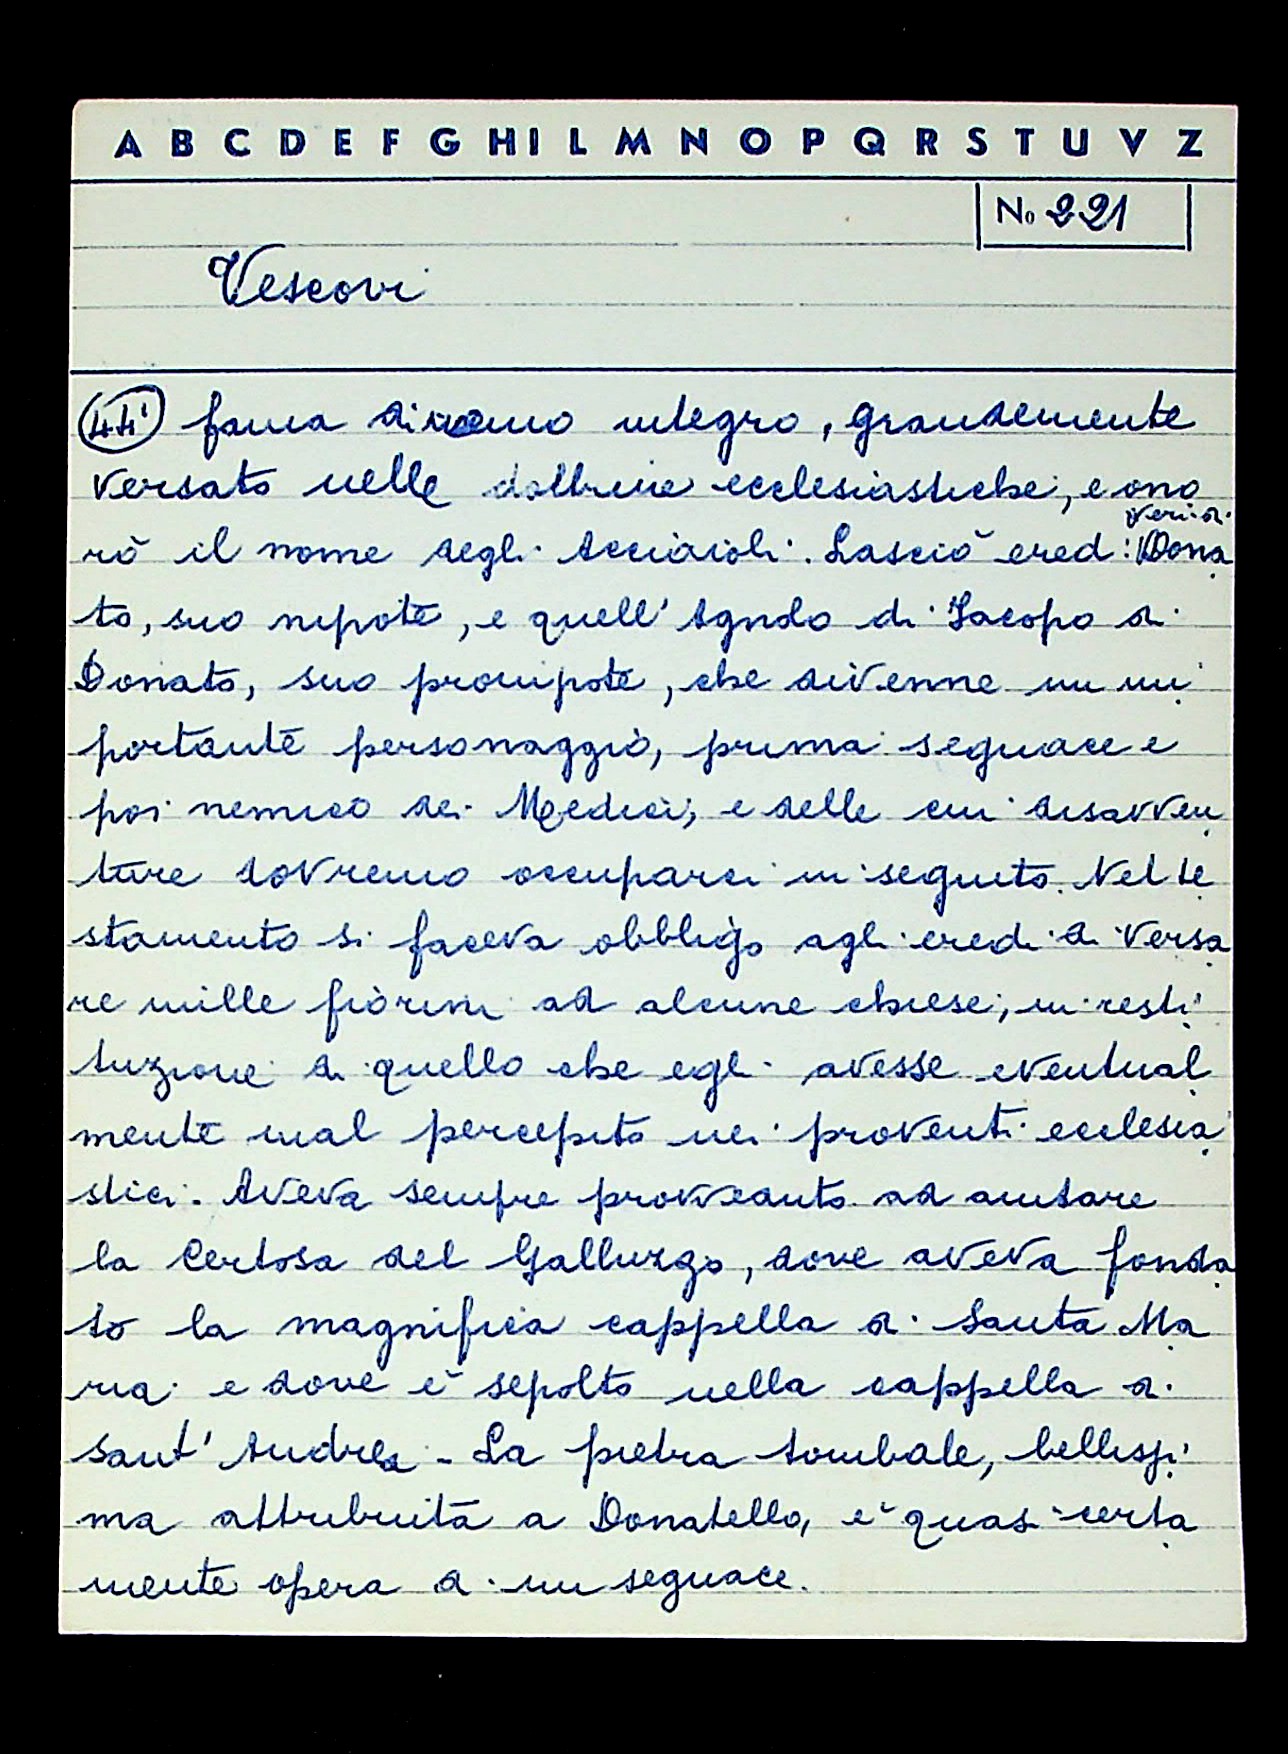 A B C D E F G H I L M N O P Q R S T U V Z
No 221
Vescovi
fama di uomo integro, grandemente
versato nelle dottrine ecclesiastiche, e ono
rò il nome degli Acciaioli. Lasciò eredi: Dona
to, suo nipote, e quell'Agnolo di Jacopo di
Donato, suo pronipote, che divenne un im
portante personaggio, prima seguace e
poi nemico dei Medici, e delle cui disavven
ture dovremo occuparci in seguito. Nel te
stamento si faceva obbligo agli eredi di versa
re mille fiorini ad alcune chiese, in resti
tuzione di quello che egli avesse eventual
mente mal percepito nei proventi ecclesia
stici. Aveva sempre provveduto ad aiutare
la Certosa del Galluzzo, dove aveva fonda
to la magnifica cappella di Santa Ma
ria e dove è sepolto nella cappella di
sant'Andrea - La pietra tombale, bellissi
ma attribuita a Donatello, è quasi certa
mente opera di un seguace.